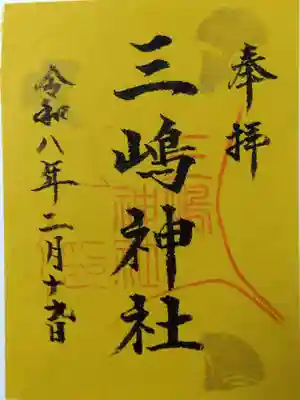 奉拝
三嶋神社
令和八年二月十九日
三嶋神社